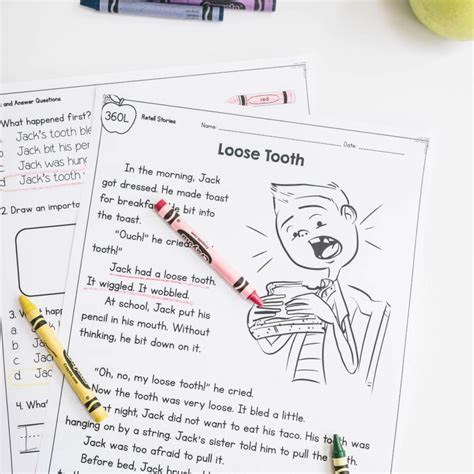 and Answer Questions
What happened first?
Jack's tooth ble
Jack bit his pen
Jack was hung
d Jack's
red
2. Draw an importa
3.
c Jack
d Jack
4. What
360L
Retell Stories
Name:
Date:
Loose Tooth
In the morning, Jack
got dressed. He made toast
for breakfast. He bit into
the toast.
"Ouch!" he cried.
tooth!"
Jack had a loose tooth.
It wiggled. It wobbled.
At school, Jack put his
pencil in his mouth. Without
thinking, he bit down on it.
"Oh, no, my loose tooth!" he cried.
Now the tooth was very loose. It bled a little.
at night, Jack did not want to eat his taco. His tooth was
hanging on by a string. Jack's sister told him to pull the
Jack was too afraid to pull it.
Before bed, Jack brushed